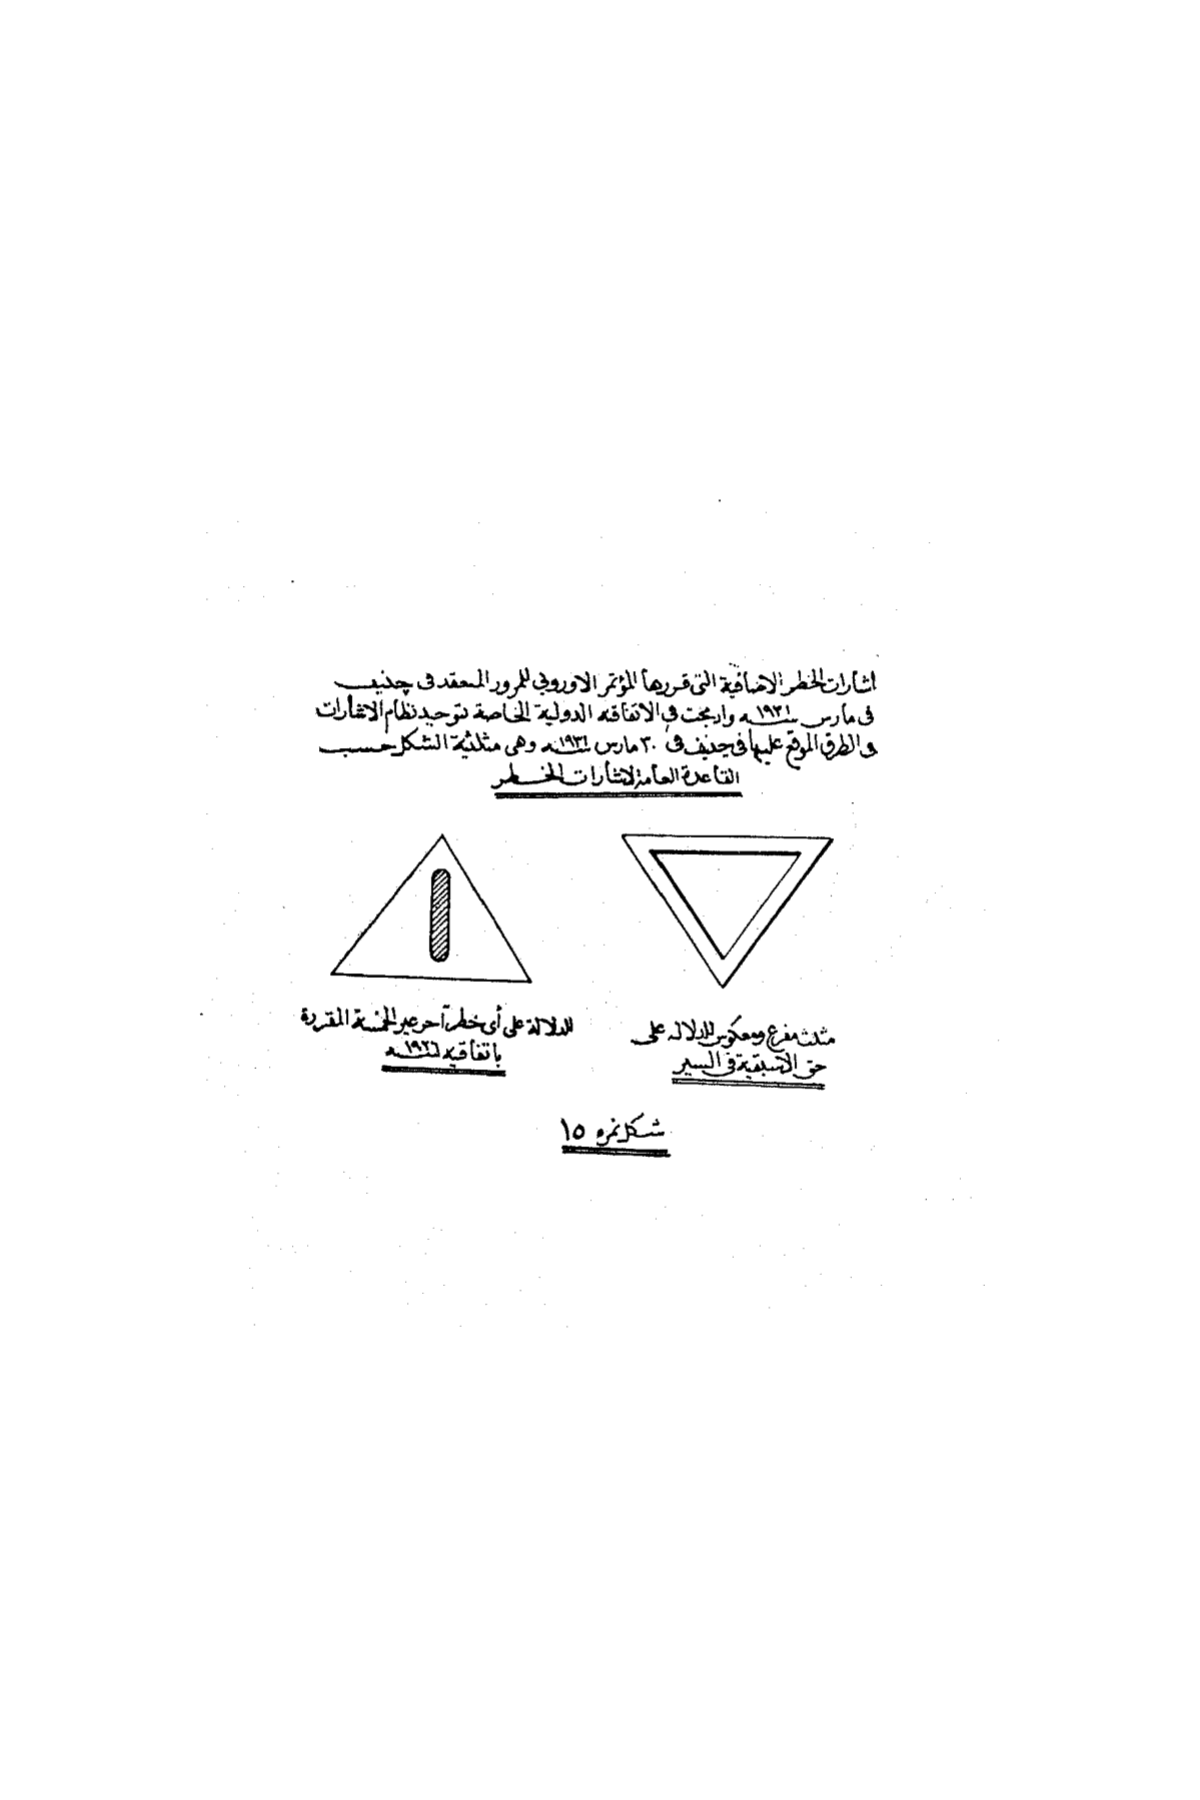 اشارات الخطر الاضافية التى قررها المؤتمر الاوروبي للمرور المنعقد فى چنيف
فى مارس سنة ١٩٣١ وادمجت في الاتفاقيه الدولية الخاصة بتوحيد نظام الاشارات
فى الطرق الموقع عليها فى چنيف فى ٣٠ مارس سنة ١٩٣١ وهى مثلثية الشكل حسب
القاعدة العامة لاشارات الخطر
مثلث مفرغ ومعكوس للدلاله على
حق الاسبقية فى السير
للدلالة على أى خطر آخر غير الخمسة المقررة
باتفاقيه سنة ١٩٢٦
شكل نمره ١٥